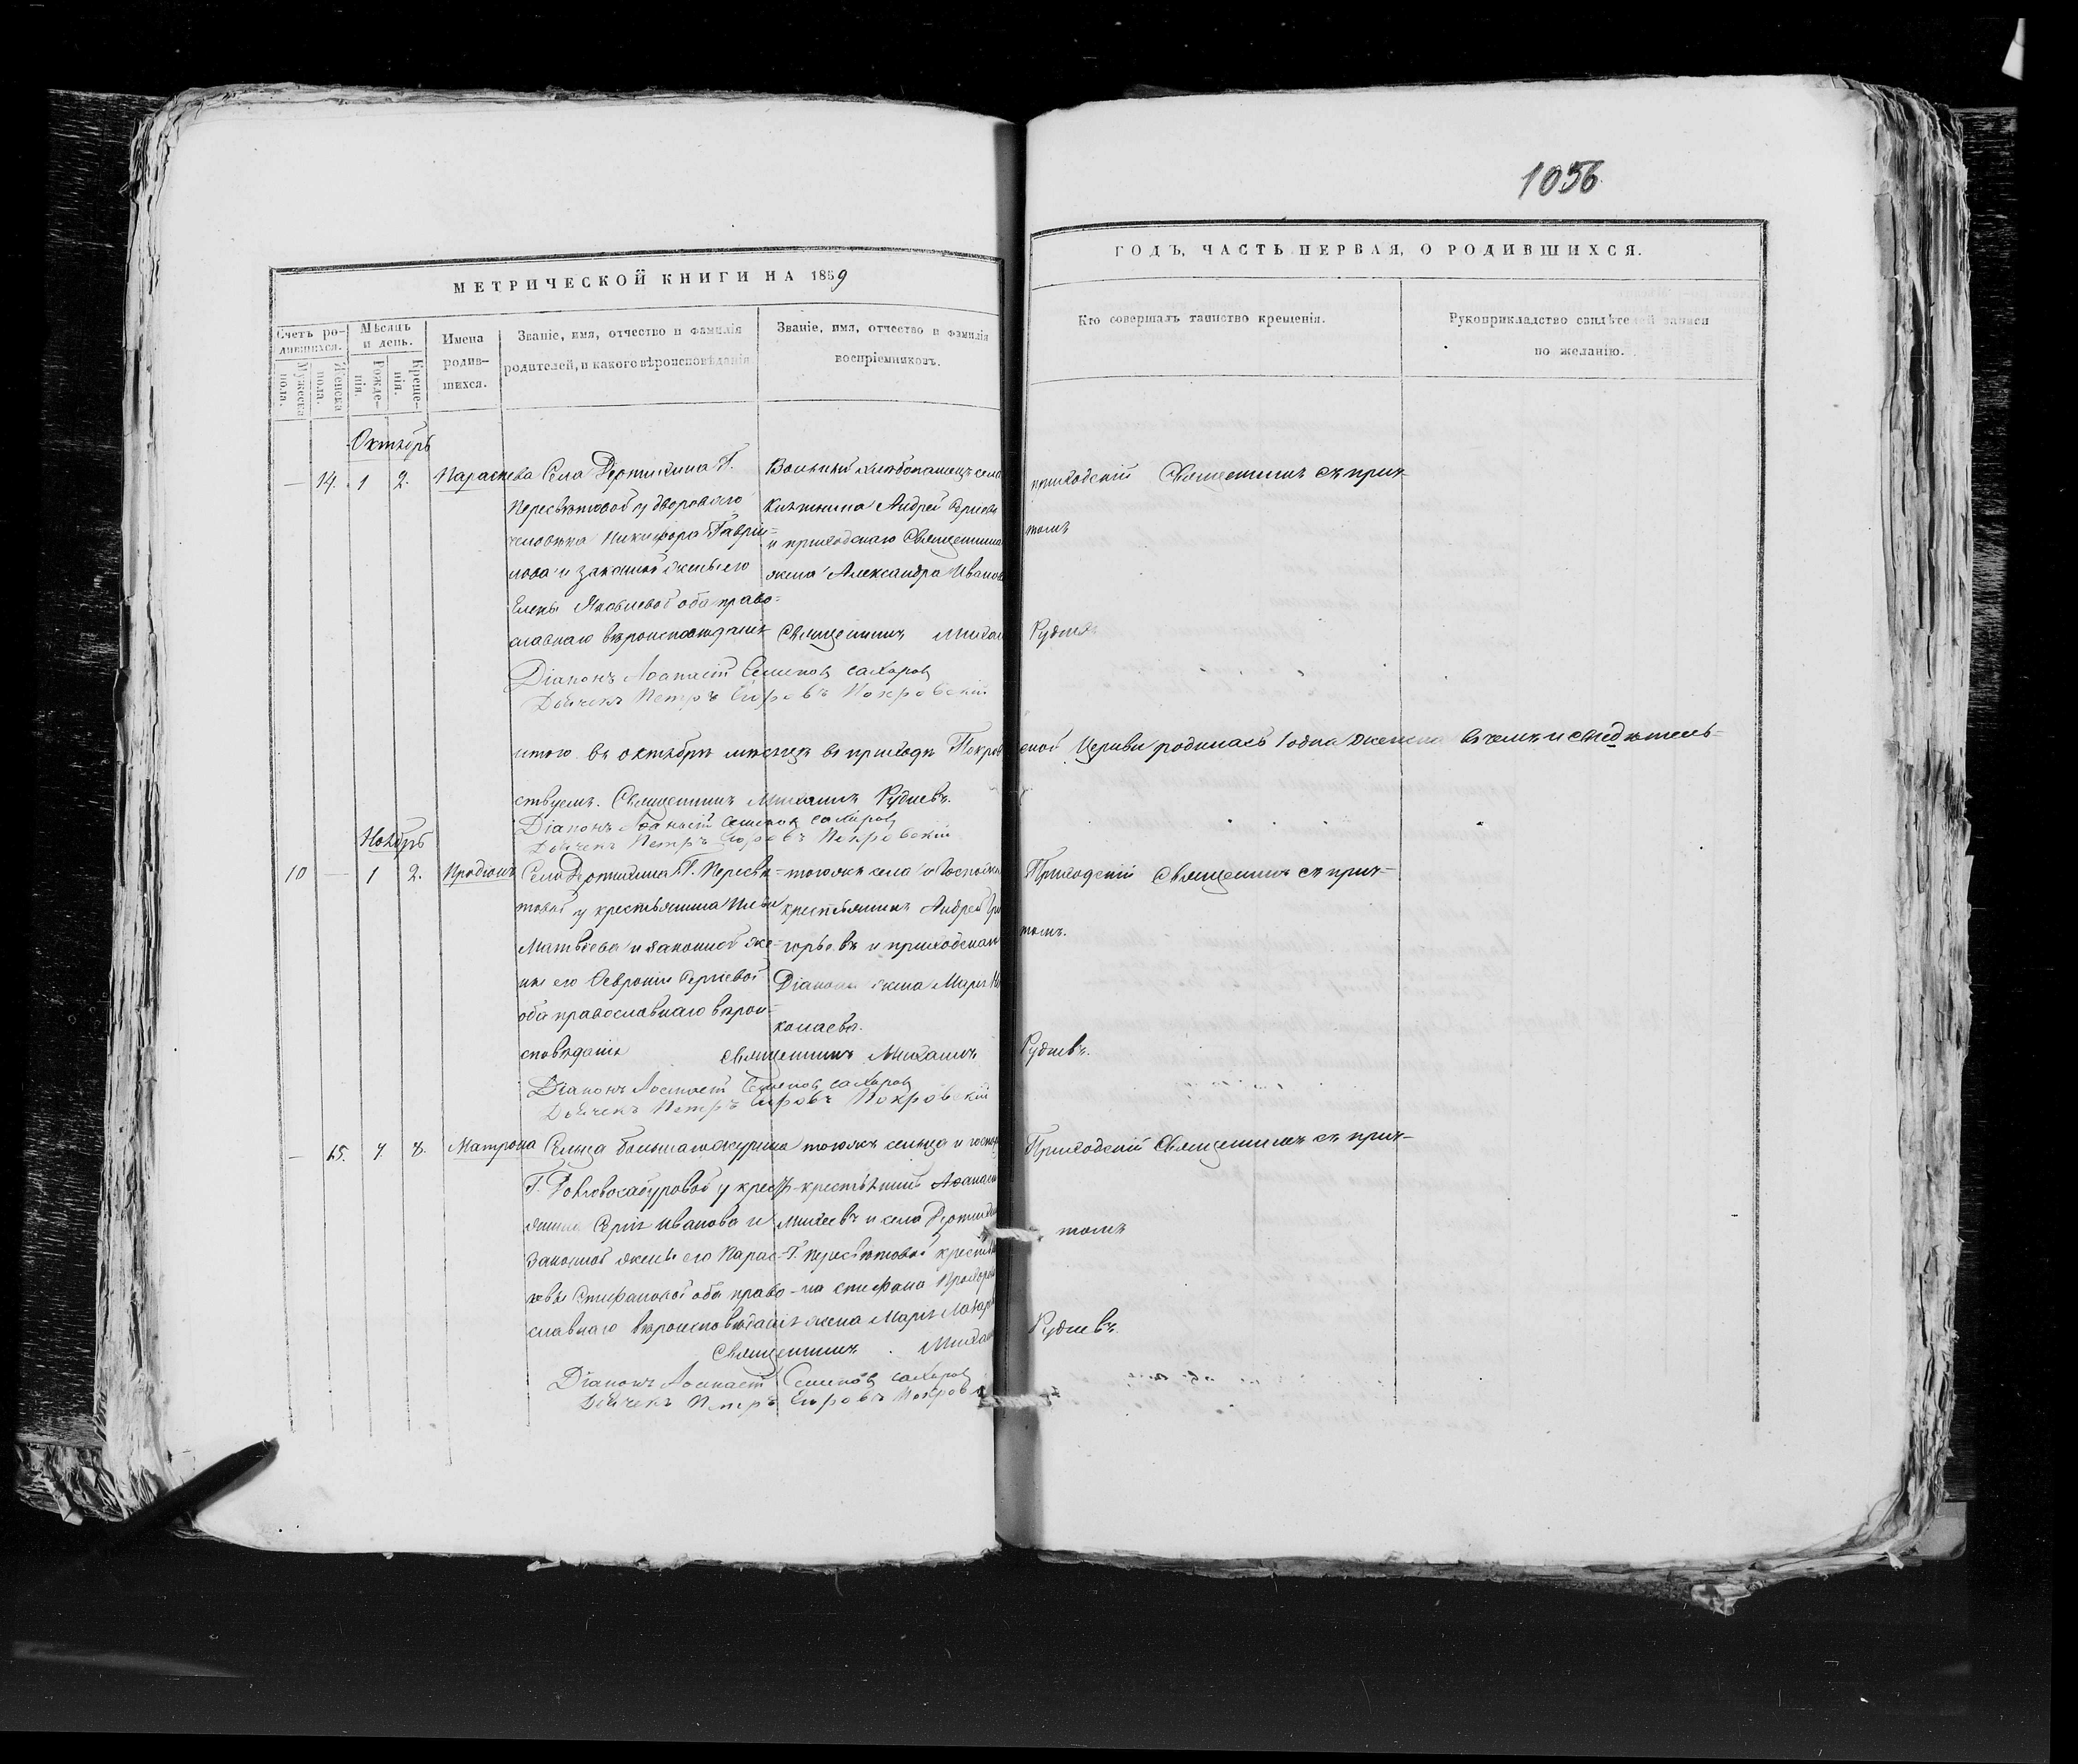 1056
МЕТРИЧЕСКОЙ КНИГИ НА 1859
ГОДЪ, ЧАСТЬ ПЕРВАЯ, О РОДИВШИХСЯ.
Счетъ ро-
дившихся.
Мужеска
пола.
Женска
пола.
Мѣсяцъ
и день.
Рожде-
нія.
Креще-
нія.
Имена
родив-
шихся.
Званіе, имя, отчество и фамилія
родителей, и какого вѣроисповѣданія
Званіе, имя, отчество и фамилія
воспріемниковъ.
Кто совершалъ таинство крещенія.
Рукоприкладство свидѣтелей записи
по желанію.
Октябрь
— 14. 1 2. Параскева
Села Г.
Пересвѣтовой у двороваго
человѣка Никифора Гаврі-
лова и законной жены его
Елены Яковлевой оба право-
славнаго вѣроисповѣданія
Вольный села
Андрей
и приходскаго Священника
жена Александра Иванов
приходскій Священникъ съ прич-
томъ
Священникъ Михаи
Рудневъ
Діаконъ Аѳанасій Семеновъ Сахаровъ
Дьячекъ Петръ Егоровъ Покровскій
итого въ октябрѣ мѣсяцѣ въ приходѣ Покров
ской Церкви родилась 1 одна женска въ чемъ и свидѣтель-
ствуемъ. Священникъ Михаилъ Рудневъ.
Діаконъ Аѳанасій Семеновъ Сахаровъ
Дьячекъ Петръ Егоровъ Покровскій
Ноябрь
10 — 1 2. Иродіонъ
Села Г. Пересвѣ-
товой у крестьянина Ильи
Матвѣева и законной же-
ны его Февроніи Сергіевой
оба православнаго вѣрои-
сповѣданія
тогожъ села и Госпожи
крестьянинъ Андрей Гри
горьевъ и приходскаго
Діакона жена Марія Ни
колаева.
Приходскій Священникъ съ прич-
томъ.
Священникъ Михаилъ
Рудневъ.
Діаконъ Аѳанасій Семеновъ Сахаровъ
Дьячекъ Петръ Егоровъ Покровскій
— 15. 7. 8. Матрона
Сельца
Г. у кресть-
янина Сергія Иванова и
законной жены его Парас-
ковьи Стефановой оба право-
славнаго вѣроисповѣданія
тогожъ сельца и госпо
крестьянинъ Аѳанасій
Михеевъ и села
Г. Пересвѣтовой крестья
на Стефана Прохоро
жена Марія Лазар
Приходскій Священникъ съ прич-
томъ
Священникъ Михаи
Рудневъ
Діаконъ Аѳанасій Семеновъ Сахаровъ
Дьячекъ Петръ Егоровъ Покров